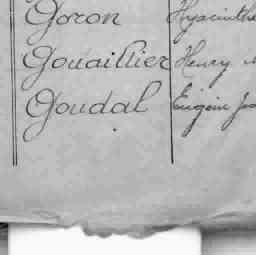 Goron Hyacinthe
Gouaillier Henry
Goudal Eugène